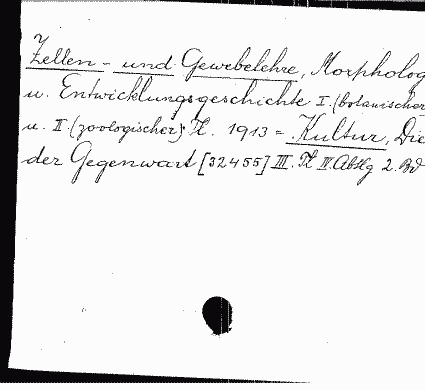 Zellen- und Gewebelehre, Morpholog
u. Entwicklungsgeschichte I. (botanischer
u. II. (zoologischer) Tl. 1913 = Kultur, Die
der Gegenwart [32455] III. Tl IV. Abtlg 2. Bd